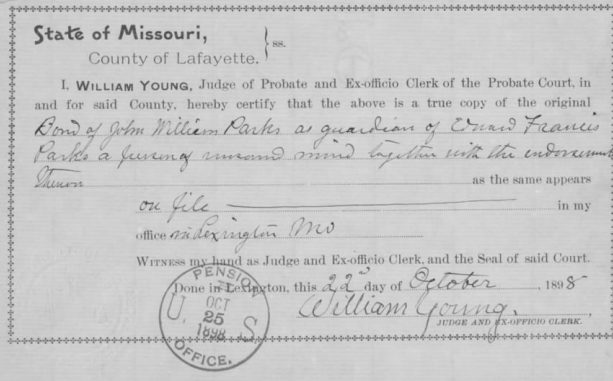 State of Missouri,
County of Lafayette. } ss.
I, WILLIAM YOUNG, Judge of Probate and Ex-officio Clerk of the Probate Court, in
and for said County, hereby certify that the above is a true copy of the original
Bond of John William Parks as guardian of Edward Francis
Parks a person of unsound mind together with the endorsements
Thereon as the same appears
on file in my
office in Lexington Mo
WITNESS my hand as Judge and Ex-officio Clerk, and the Seal of said Court.
Done in Lexington, this 22d day of October, 1898
William Young,
JUDGE AND EX-OFFICIO CLERK.
U. S. PENSION
OCT
25
1898
OFFICE.